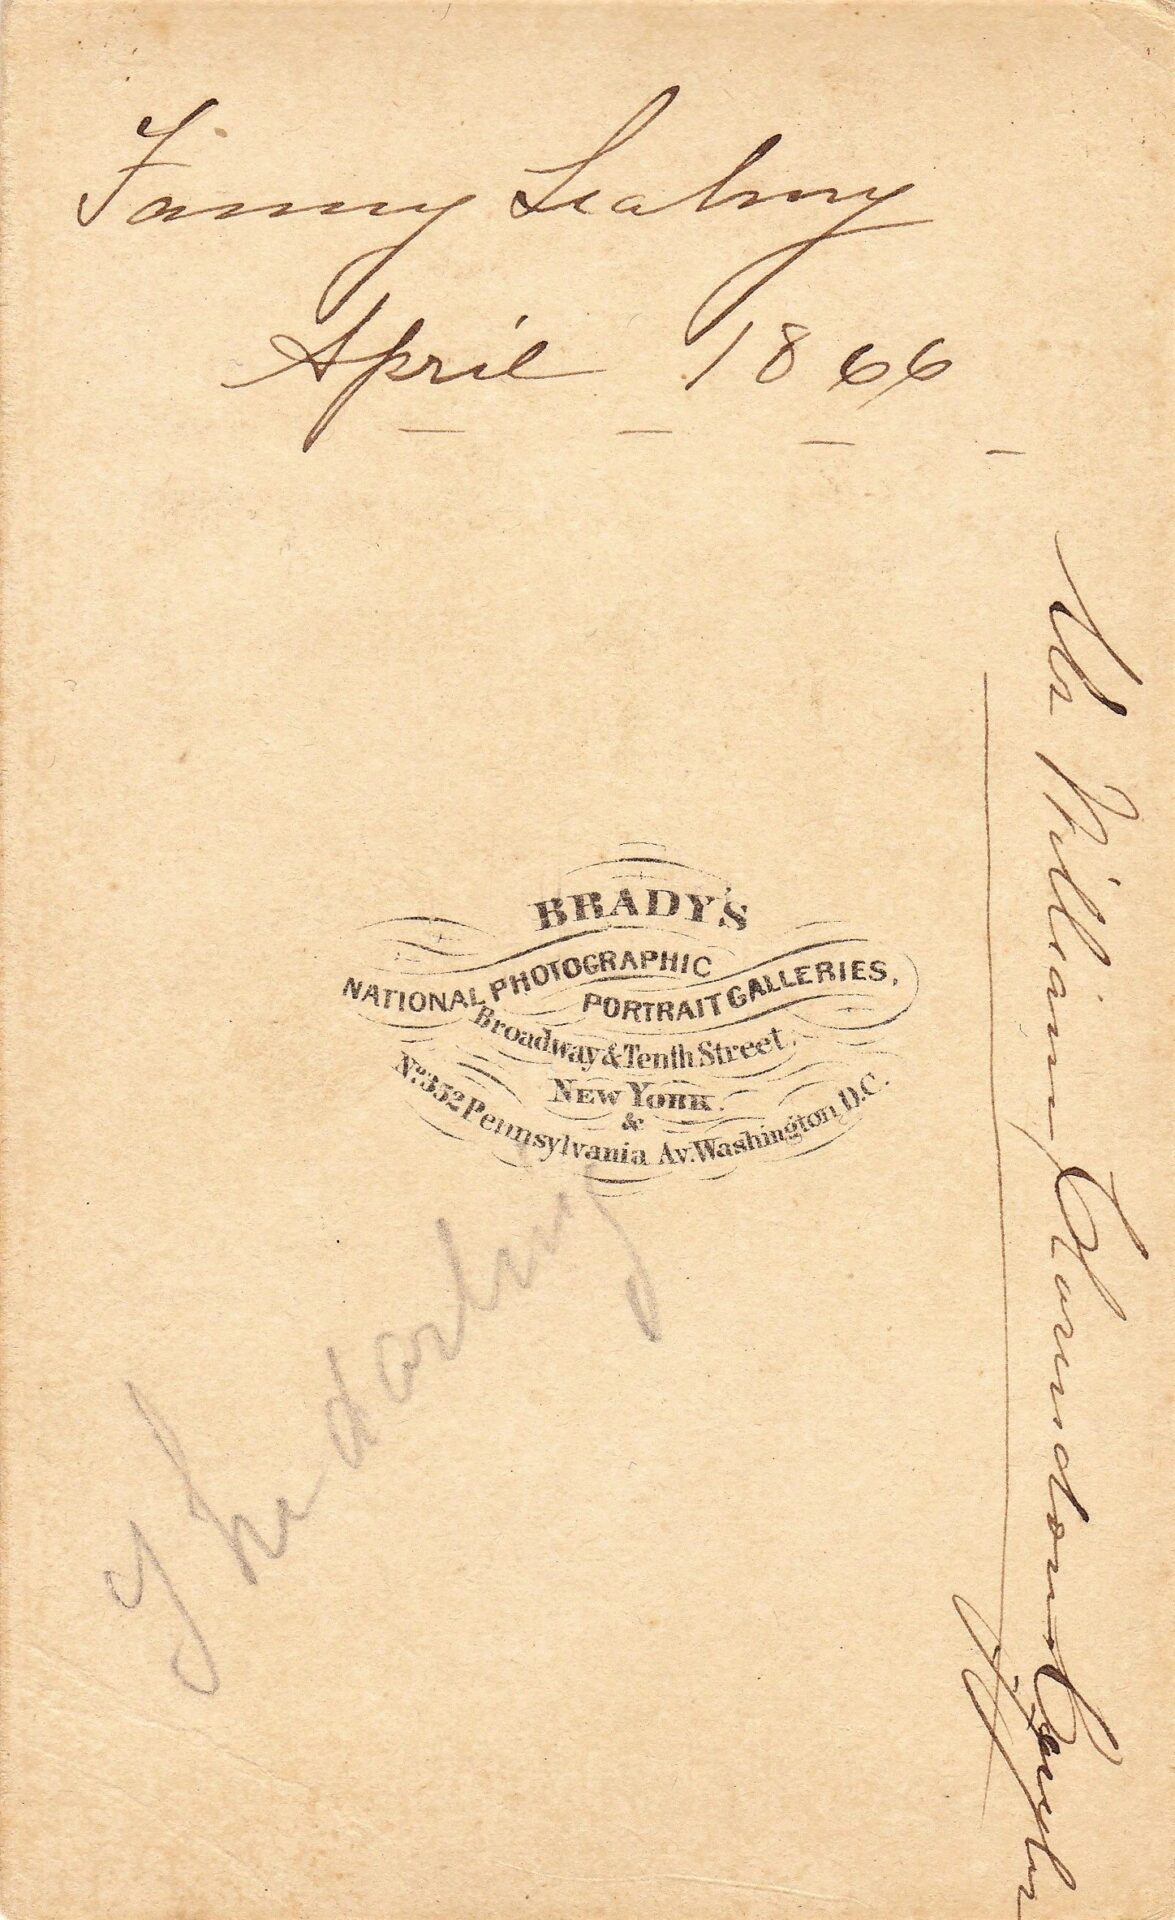 Fanny
April 1866
BRADY'S
NATIONAL PHOTOGRAPHIC
PORTRAIT GALLERIES,
Broadway & Tenth Street,
NEW YORK.
&
No. 352 Pennsylvania Av. Washington D.C.
The darling
Mr William